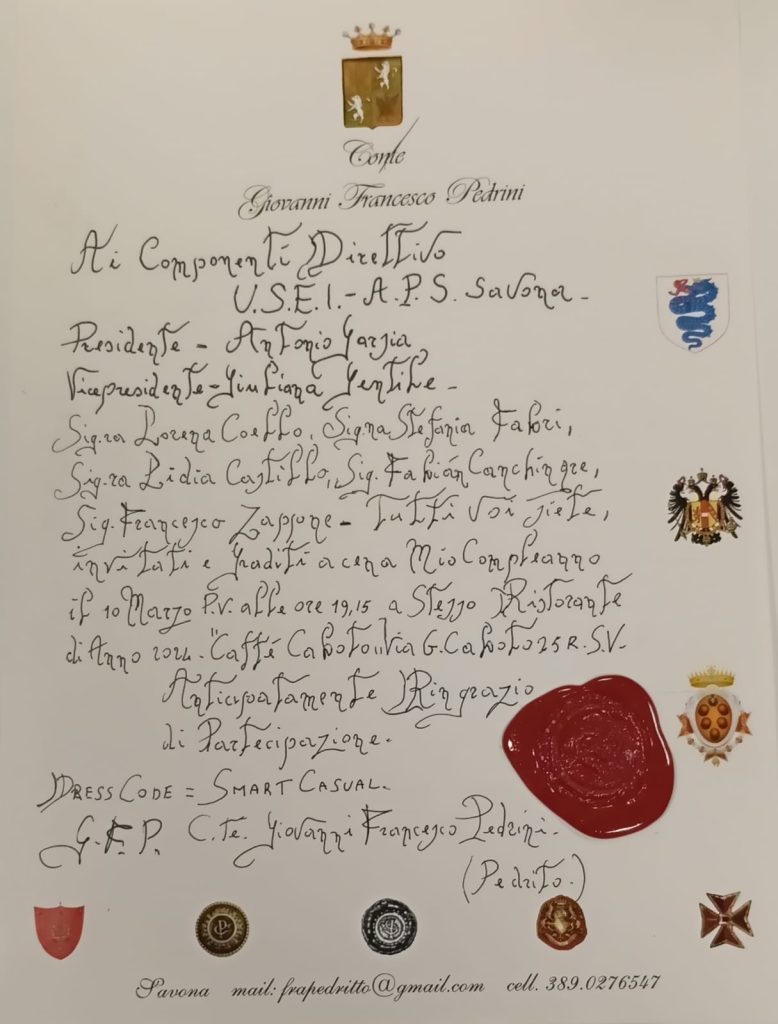 Conte
Giovanni Francesco Pedrini
Ai Componenti Direttivo
U.S.E.I.-A.P.S. Savona-
Presidente - Antonio Garzia
Vicepresidente-Giuliana Gentile-
Sig.ra Lorena Coello, Sig.na Stefania Fabri,
Sig.ra Lidia Castillo, Sig. Fabián Canchingre,
Sig. Francesco Zappone- Tutti voi siete,
invitati e graditi a cena Mio Compleanno
il 10 Marzo P.V. alle ore 19,15 a Stesso Ristorante
di Anno 2024. "Caffé Caboto" Via G. Caboto 25 R. S.V.
Anticipatamente Ringrazio
di Partecipazione.
Dress Code = Smart Casual.
G.F.P. C.te. Giovanni Francesco Pedrini.
(Pedrito.)
Savona mail: frapedritto@gmail.com cell. 389.0276547